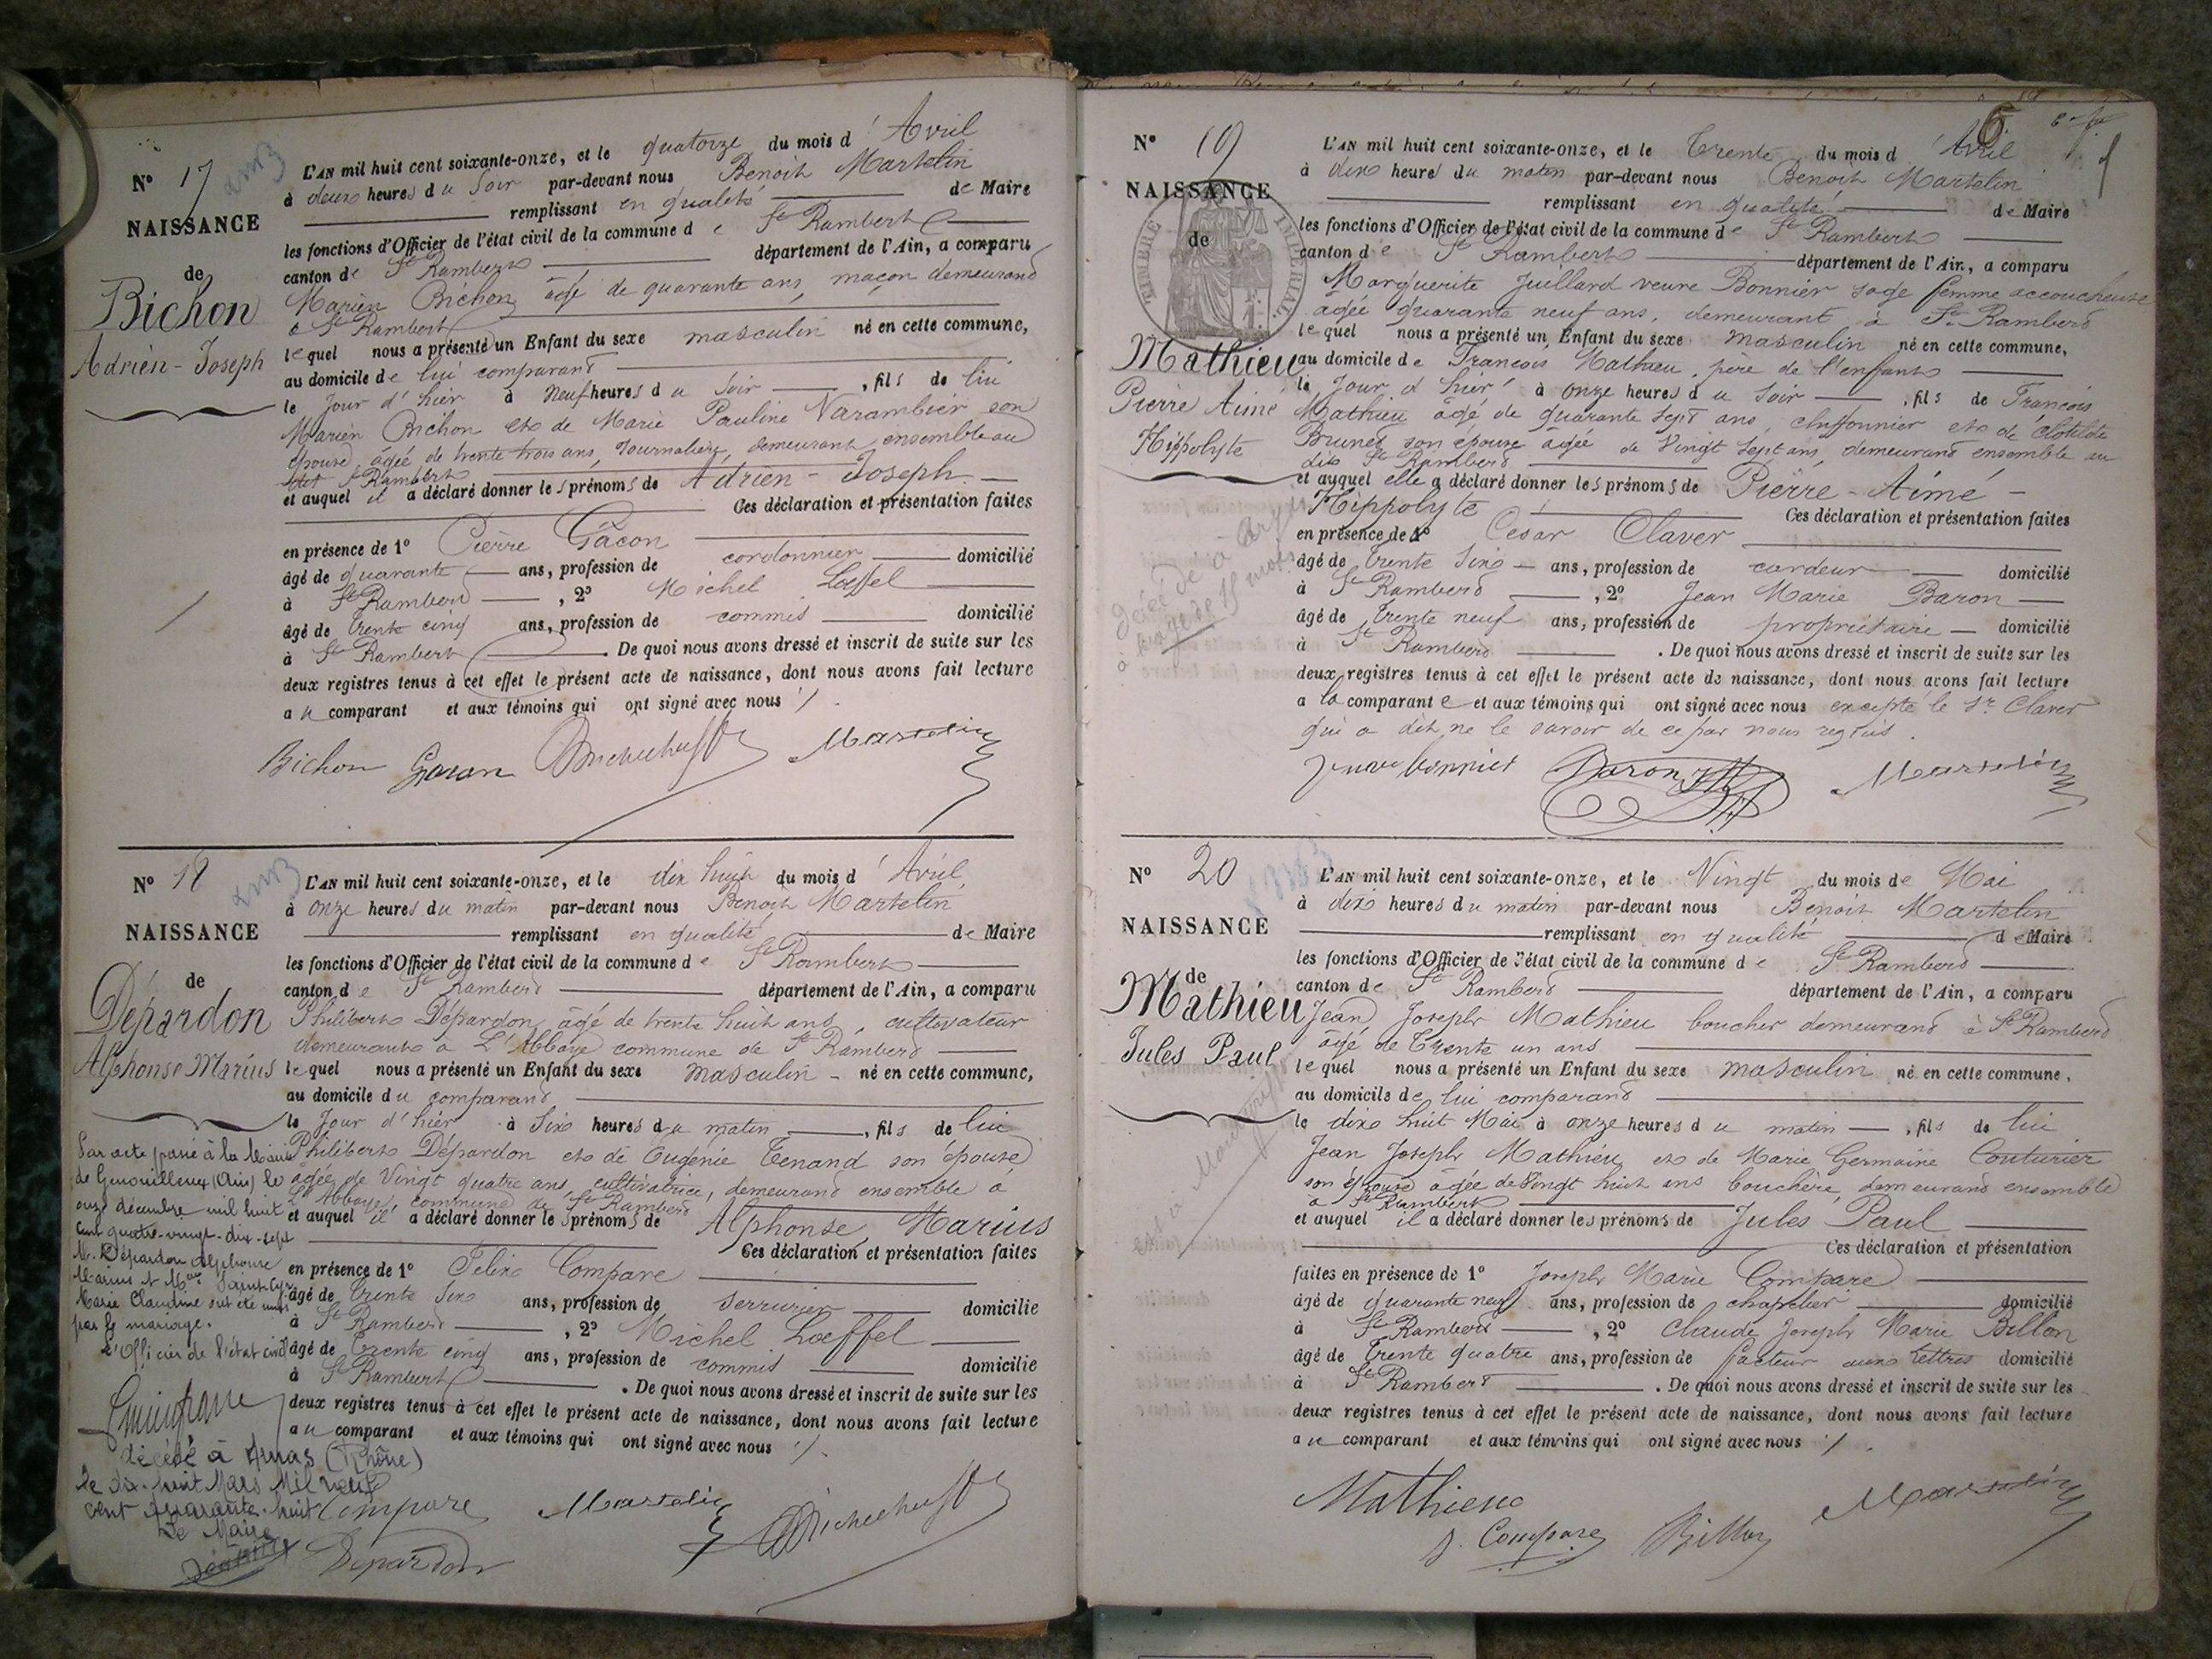 N° 17
NAISSANCE
de
Bichon
Adrien - Joseph
L'AN mil huit cent soixante-onze, et le quatorze du mois d'Avril
à deux heures du Soir par-devant nous Benoit Martelin
remplissant en qualité de Maire
les fonctions d'Officier de l'état civil de la commune de St Rambert
canton de St Rambert département de l'Ain, a comparu
Marien Bichon âgé de quarante ans, maçon demeurant
à St Rambert
lequel nous a présenté un Enfant du sexe masculin né en cette commune,
au domicile de lui comparant
le Jour d'hier à Neuf heures du Soir , fils de lui
Marien Bichon et de Marie Pauline Varambier son
épouse, âgée de trente trois ans, Journalière, demeurant ensemble au
dit St Rambert
et auquel il a déclaré donner les prénoms de Adrien - Joseph. -
Ces déclaration et présentation faites
en présence de 1° Pierre Gâcon
âgé de quarante ans, profession de cordonnier domicilié
à St Rambert , 2° Michel Lœffel
âgé de trente cinq ans, profession de commis domicilié
à St Rambert . De quoi nous avons dressé et inscrit de suite sur les
deux registres tenus à cet effet le présent acte de naissance, dont nous avons fait lecture
au comparant et aux témoins qui ont signé avec nous
Bichon Martelin
N° 18
NAISSANCE
de
Dépardon
Alphonse Marius
L'AN mil huit cent soixante-onze, et le dix huit du mois d'Avril
à onze heures du matin par-devant nous Benoit Martelin
remplissant en qualité de Maire
les fonctions d'Officier de l'état civil de la commune de St Rambert
canton de St Rambert département de l'Ain, a comparu
Philibert Dépardon âgé de trente huit ans, cultivateur
demeurant à L'Abbaye commune de St Rambert
lequel nous a présenté un Enfant du sexe masculin - né en cette commune,
au domicile du comparant
le Jour d'hier à Six heures du matin , fils de lui
Philibert Dépardon et de Eugénie Tenand son épouse
âgée de Vingt quatre ans, cultivatrice, demeurant ensemble à
L'Abbaye, commune de St Rambert
et auquel il a déclaré donner les prénoms de Alphonse Marius
Ces déclaration et présentation faites
en présence de 1° Felix Compare
âgé de Trente Six ans, profession de serrurier domicilié
à St Rambert , 2° Michel Lœffel
âgé de Trente cinq ans, profession de commis domicilié
à St Rambert . De quoi nous avons dressé et inscrit de suite sur les
deux registres tenus à cet effet le présent acte de naissance, dont nous avons fait lecture
au comparant et aux témoins qui ont signé avec nous
Par acte passé à la Mairie
de Genouilleux (Ain) le
onze décembre mil huit
cent quatre-vingt-dix-sept
M. Dépardon Alphonse
Marius et Mlle Saint-Cyr
Marie Claudine ont été unis
par le mariage.
L'Officier de l'état civil
décédé à Arnas (Rhône)
le dix-huit Mars Mil neuf
cent quarante-huit
Le Maire
Compare Martelin
Depardon
6
N° 19
NAISSANCE
de
TIMBRE IMPÉRIAL
Mathieu
Pierre Aimé
Hippolyte
L'AN mil huit cent soixante-onze, et le Trente du mois d'Avril
à dix heures du matin par-devant nous Benoit Martelin
remplissant en qualité de Maire
les fonctions d'Officier de l'état civil de la commune de St Rambert
canton de St Rambert département de l'Ain, a comparu
Marguerite Juillard veuve Bonnier sage femme accoucheuse
âgée quarante neuf ans, demeurant à St Rambert
lequel nous a présenté un Enfant du sexe masculin né en cette commune,
au domicile de François Mathieu, père de l'enfant
le Jour d'hier à onze heures du Soir , fils de François
Mathieu âgé de quarante sept ans, chiffonnier et de Clotilde
Brunet son épouse âgée de Vingt Sept ans, demeurant ensemble au
dit St Rambert
et auquel elle a déclaré donner les prénoms de Pierre - Aimé -
Hippolyte Ces déclaration et présentation faites
en présence de 1° Cesar Claver
âgé de trente Six ans, profession de cardeur domicilié
à St Rambert , 2° Jean Marie Baron
âgé de trente neuf ans, profession de propriétaire domicilié
à St Rambert . De quoi nous avons dressé et inscrit de suite sur les
deux registres tenus à cet effet le présent acte de naissance, dont nous avons fait lecture
a la comparante et aux témoins qui ont signé avec nous excepté le Sr Claver
qui a dit ne le savoir de ce par nous requis.
veuve bonnier Baron Martelin
N° 20
NAISSANCE
de
Mathieu
Jules Paul
L'AN mil huit cent soixante-onze, et le Vingt du mois de Mai
à dix heures du matin par-devant nous Benoit Martelin
remplissant en qualité de Maire
les fonctions d'Officier de l'état civil de la commune de St Rambert
canton de St Rambert département de l'Ain, a comparu
Jean Joseph Mathieu boucher demeurant à St Rambert
âgé de Trente un ans
lequel nous a présenté un Enfant du sexe masculin né en cette commune,
au domicile de lui comparant
le dix huit Mai à onze heures du matin , fils de lui
Jean Joseph Mathieu et de Marie Germaine Couturier
son épouse âgée de Vingt huit ans bouchère, demeurant ensemble
à St Rambert
et auquel il a déclaré donner les prénoms de Jules Paul
Ces déclaration et présentation
faites en présence de 1° Joseph Marie Compare
âgé de quarante neuf ans, profession de chapelier domicilié
à St Rambert , 2° Claude Joseph Marie Billon
âgé de Trente quatre ans, profession de facteur aux lettres domicilié
à St Rambert . De quoi nous avons dressé et inscrit de suite sur les
deux registres tenus à cet effet le présent acte de naissance, dont nous avons fait lecture
au comparant et aux témoins qui ont signé avec nous
Mathieu Martelin
J. Compare Billon